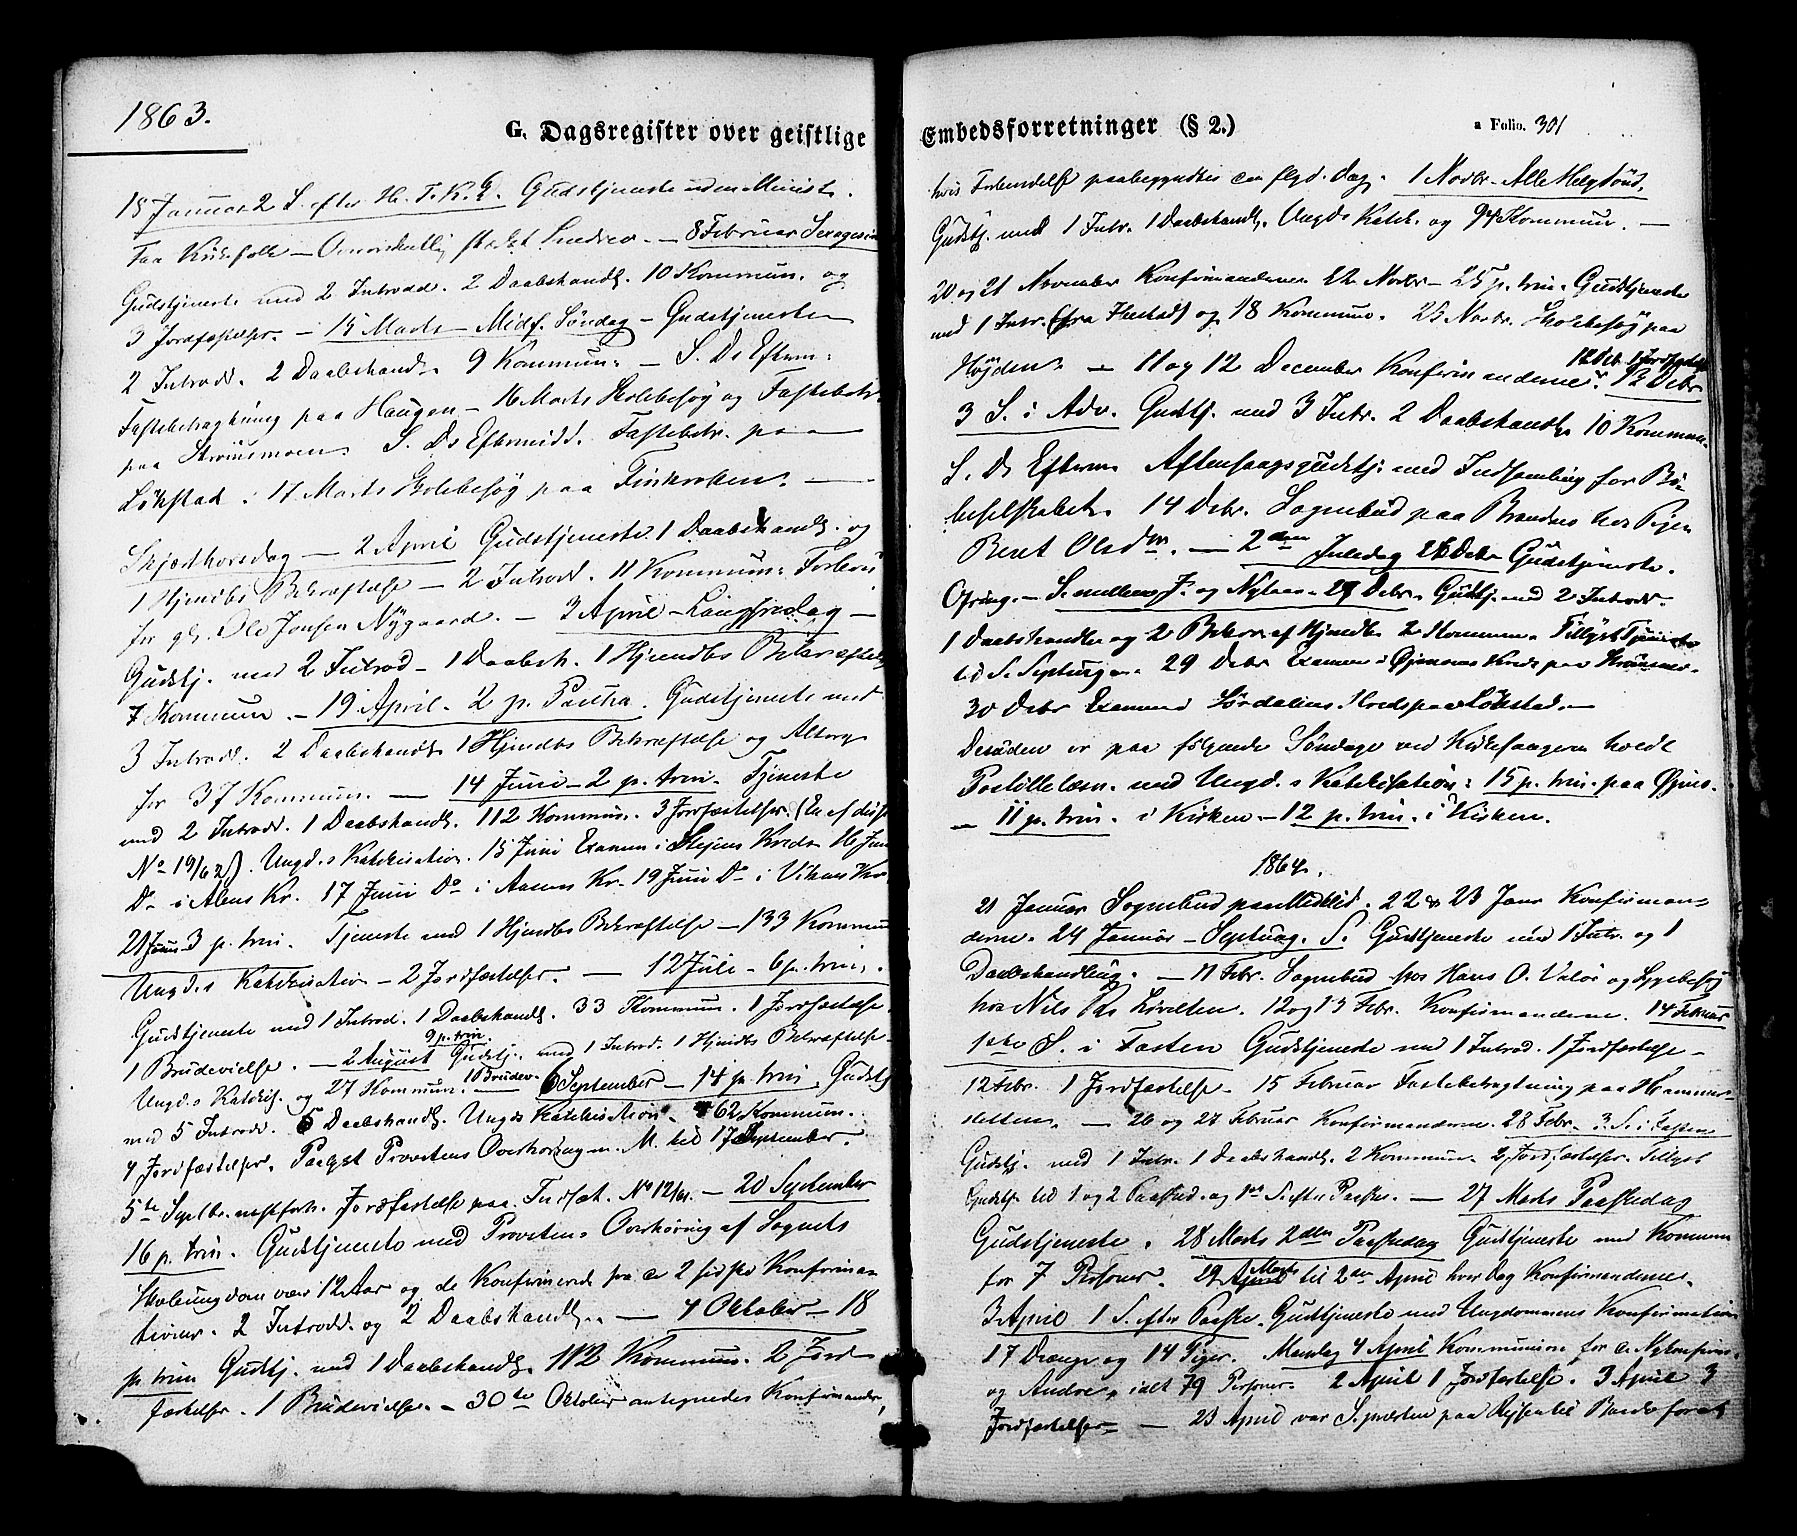 1863.
G. Dagsregister over geistlige
18 Januar 2 S. efter H. T. K. G. Gudstjeneste uden Minist.
Faa Kirkefolk — — 8 Februar Sexagesim
Gudstjeneste med 2 Introd. 2 Daabshandl. 10 Kommun. og
3 Jordfæstelser. — 15 Marts — Midf. Søndag — Gudstjeneste
2 Introd. 2 Daabshandl. 9 Kommun. — S. D. Efterm.
Fastebetragtning paa Haugen — 16 Marts Skolebesøg og Fastebetr.
paa Strømsmoen. S. D. Eftermidd. Fastebetr. paa
Løkstad. 17 Marts Skolebesøg paa Finkroken. —
Skjærthorsdag — 2 April Gudstjeneste 1 Daabshandl. og
1 Hjemdbs Bekræftelse — 2 Introd. 11 Kommun.
for Ole Jonsen Nygaard. — 3 April — Langfredag —
Gudstj. med 2 Introd — 1 Daabsh. 1 Hjemdbs Bekræftelse
7 Kommun. — 19 April — 2 p. Pascha. Gudstjeneste med
3 Introd. 2 Daabshandl. 1 Hjemdbs Bekræftelse og Alterg.
for 37 Kommun. — 14 Juni — 2 p. trin. Tjeneste
med 2 Introd. 1 Daabshandl. 112 Kommun. 3 Jordfæstelser. (En af disse
No 19/62). Ungd.s Katekisation. 15 Juni Examen i Kreds 16 Juni
Do i Alens Kr. 17 Juni Do i Aasens Kr. 19 Juni Do i Vikans Kr.
21 Juni 3 p. trin. Tjeneste med 1 Hjemdbs Bekræftelse — 133 Kommun
Ungd.s Katekisation — 2 Jordfæstelser. — 12 Juli — 6 p. trin.
Gudstjeneste med 1 Introd. 1 Daabshandl. 33 Kommun. 1 Jordfæstelse
9 p. trin.
1 Brudevielse. — 2 August Gudstj. med 1 Introd. 1 Hjemdbs Bekræftelse —
Ungd.s Katekis. og 27 Kommun. 1 Brudev. 6 September — 14 p. trin. Gudstj
med 5 Introd. 5 Daabshandl. Ungds Katekisation. 62 Kommun.
4 Jordfæstelser. Provstens Overhøring til 17 September.
5te Septbr. Jordfæstelse paa No 12/61. — 20 September
16 p. trin. Gudstjeneste med Provstens Overhøring af Sognets
Skoleungdom over 12 Aar og de Konfirmerede fra de 2 sidste Konfirma-
tioner. 2 Introd. og 2 Daabshandl. — 4 Oktober — 18
p. trin Gudstj. med 1 Daabshandl. 112 Kommun. 2 Jord-
fæstelser. 1 Brudevielse. — 30te Oktober antegnedes Konfirmander,
Embedsforretninger (§ 2.)
a Folio. 301
hvis Forberedelse paabegyndtes flgd. Dag. 1 Novbr. Alle Helg. Sønd.
Gudstj. med 1 Intr. 1 Daabshandl. Ungds Katek. og 94 Kommun. —
20 og 21 November Konfirmanderne 22 Novbr. — 25 p. trin. Gudstjeneste
med 1 Intr. (fra ) og 18 Kommun. 25 Novbr. Skolebesøg paa
12 Debr. 1 Jordfæstelse
Højden. — 11 og 12 December Konfirmanderne. 13 Debr
3 S. i Adv. Gudstj. med 3 Intr. 2 Daabshandl. 10 Kommun.
S. D. Efterm Aftensangsgudstj. med Indsamling for Bi-
belselskabet. 14 Debr. Sognebud paa hos Pigen
Beret Olsdr. — 2den Juledag 26 Debr Gudstjeneste.
Ofring. — S. mellem J. og Nytaar 27 Debr. Gudstj. med 2 Introd.
1 Daabshandl. og 2 Bekr. af Hjmdb. 2 Kommun. Tillyst Tjeneste
til S. Septuag. 29 Debr Examen i Øjenes Kreds paa
30 Debr Examen i Sørdalens Kreds paa Løkstad. —
Desuden er paa følgende Søndage ved Kirkesangeren holdt
Postillelæsn. med Ungd.s Katekisation: 15 p. trin. paa Øjnes.
— 11 p. trin. i Kirken — 12 p. trin. i Kirken.
1864.
21 Januar Sognebud paa . 22 & 23 Janr Konfirman-
derne. 24 Januar — Septuag. S. Gudstjeneste med 1 Intr. og 1
Daabshandling. — 11 Febr. Sognebud hos Hans O. og Sygebesøg
hos Nils . 12 og 13 Febr. Konfirmanderne. 14 Februar
1ste S. i Fasten Gudstjeneste med 1 Introd. 1 Jordfæstelse —
12 Febr. 1 Jordfæstelse. 15 Februar Fastebetragtning paa Hammer-
sletten. — 26 og 27 Februar Konfirmanderne. 28 Febr. 3 S. i Fasten
Gudstj. med 1 Intr. 1 Daabshandl. 2 Kommun. 2 Jordfæstelser. Tillyst
Gudstj. til 1 og 2 Paaskd. og 1ste S. efter Paaske. — 27 Marts Paaskedag
Gudstjeneste. 28 Marts 2den Paaskedag Gudstjeneste med Kommun
for 7 Personer. 29 Marts til 2den April hver Dag Konfirmanderne.
3 April 1 S. efter Paaske. Gudstjeneste med Ungdommens Konfirmation
17 Drenge og 14 Piger. Mandag 4 April Kommunion for de Nykonfirm.
og Andre, ialt 79 Personer. 2 April 1 Jordfæstelse. 3 April 3
Jordfæstelser — 23 April var S.præsten paa Rejsen til